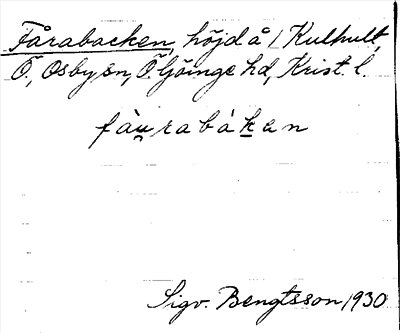 Fårabacken, höjd å 1 Kulhult,
Ö., Osby sn, Ö. Göinge hd, Krist. l.
fàu̯rabákan
Sigv. Bengtsson, 1930